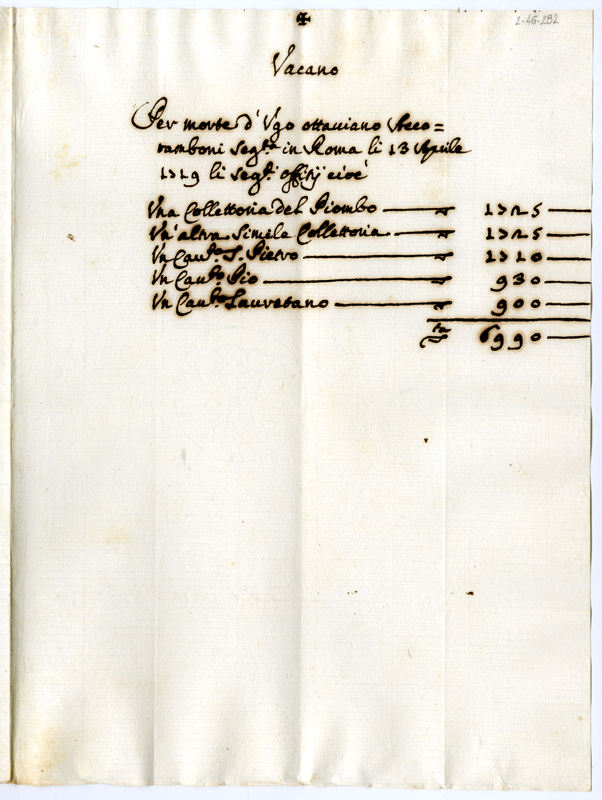 2-46-282
Vacano
Per morte d'Ugo ottaviano Acco=
ramboni Seg.ta in Roma li 13 Aprile
1719 li Seg.ti offitij cioè
Una Collettoria del Piombo — 1725 —
Un'altra Simile Collettoria — 1725 —
Un Cau.to S. Pietro — 1710 —
Un Cau.to Pio — 930 —
Un Cau.to Lauretano — 900 —
6990 —